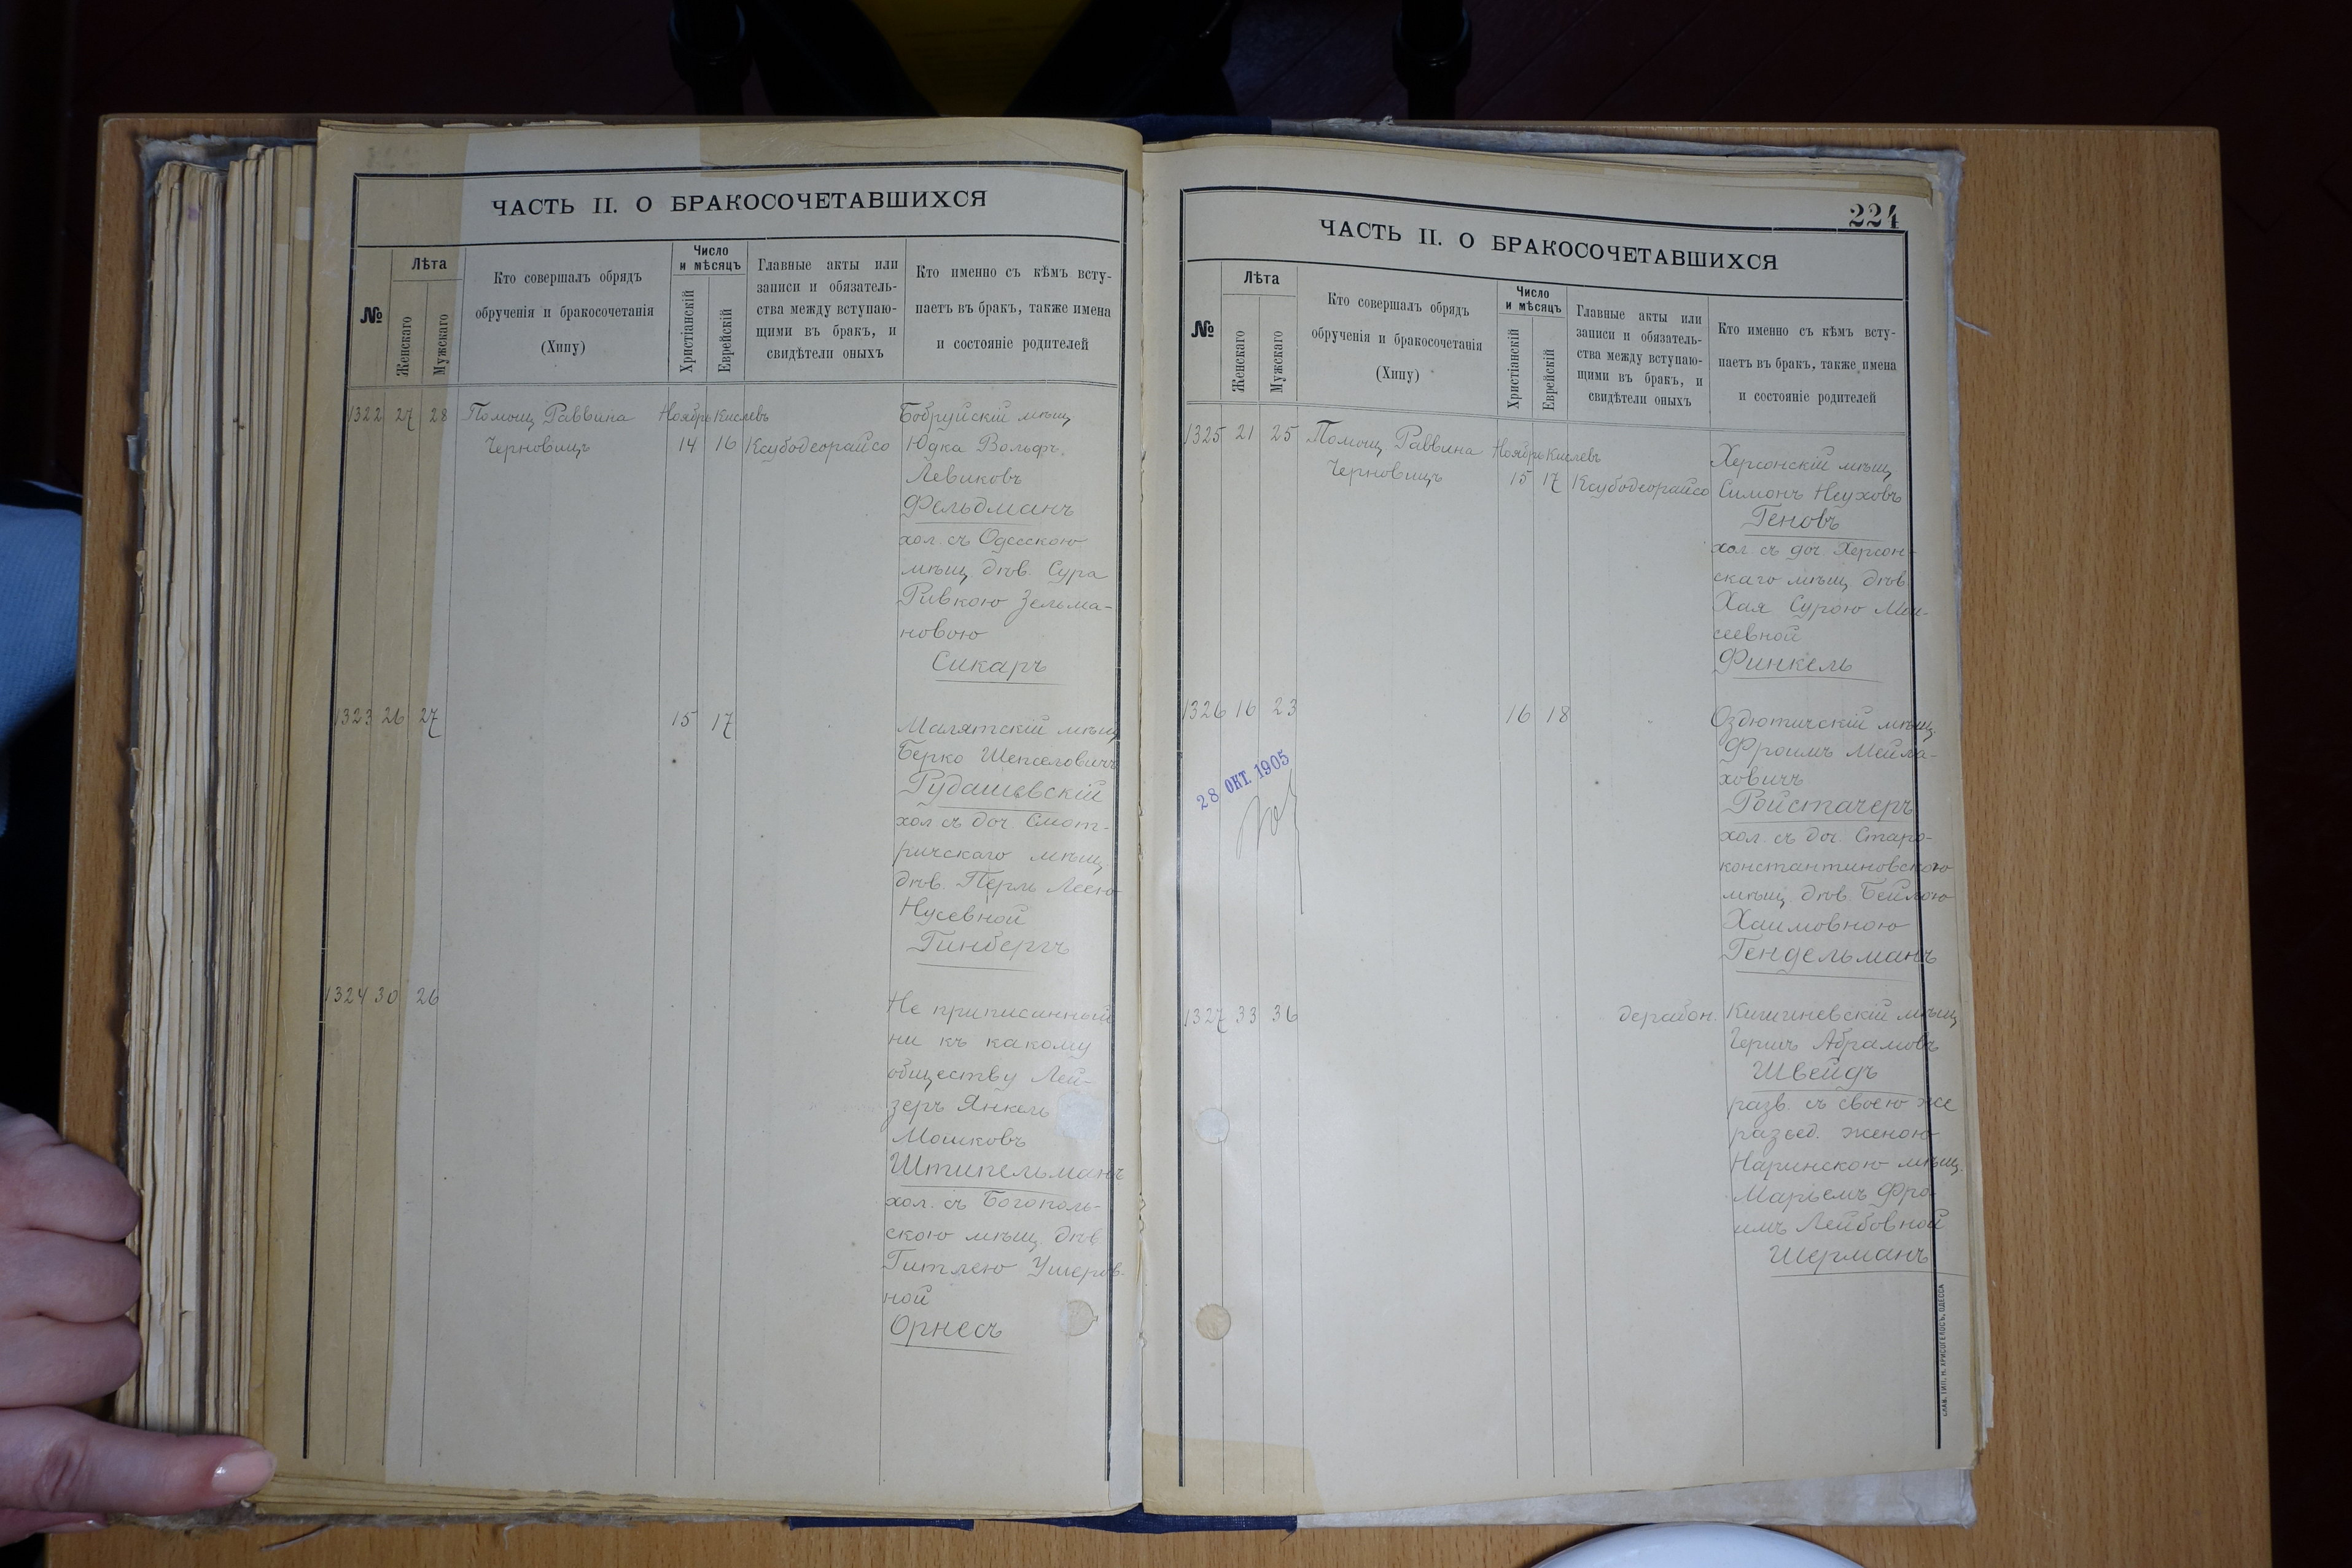 ЧАСТЬ II. О БРАКОСОЧЕТАВШИХСЯ
№
Лѣта
Женскаго
Мужскаго
Кто совершалъ обрядъ
обрученія и бракосочетанія
(Хипу)
Число
и мѣсяцъ
Христіанскій
Еврейскій
Главные акты или
записи и обязатель-
ства между вступаю-
щими въ бракъ, и
свидѣтели оныхъ
Кто именно съ кѣмъ всту-
паетъ въ бракъ, также имена
и состояніе родителей
1322 27 28 Помощ Раввина Ноябрь Кислевъ Бобруйскій мѣщ
Черновицъ 14 16 Ксубодеорайсо Юдка Вольфъ
Левиковъ
Фельдманъ
хол. съ Одесскою
мѣщ. дѣв. Сура
Ривкою Зельма-
новою
Сикаръ
1323 26 27 15 17 Малятскій мѣщ
Берко Шепселовичъ
Рудашевскій
хол съ доч. Смот-
ричскаго мѣщ
дѣв. Перль Леею
Нусевной
Гинбергъ
1324 30 26 Не приписанный
ни къ какому
обществу Лей-
зеръ Янкель
Мошковъ
Штипельманъ
хол. съ Богополь-
скою мѣщ. дѣв
Гитлею Ушеров-
ной
Орнесъ
224
ЧАСТЬ II. О БРАКОСОЧЕТАВШИХСЯ
№
Лѣта
Женскаго
Мужскаго
Кто совершалъ обрядъ
обрученія и бракосочетанія
(Хипу)
Число
и мѣсяцъ
Христіанскій
Еврейскій
Главные акты или
записи и обязатель-
ства между вступаю-
щими въ бракъ, и
свидѣтели оныхъ
Кто именно съ кѣмъ всту-
паетъ въ бракъ, также имена
и состояніе родителей
1325 21 25 Помощ Раввина Ноябрь Кислевъ Херсонскій мѣщ
Черновицъ 15 17 Ксубодеорайсо Симонъ Неуховъ
Геновъ
хол. съ доч. Херсон-
скаго мѣщ. дѣв.
Хая Сурою Мои-
сеевной
Финкель
1326 16 23 16 18 Оздютичскій мѣщ.
Фроимъ Мейла-
ховичъ
Ройстачеръ
хол. съ доч. Старо-
константиновскою
мѣщ. дѣв. Бейлою
Хаимовною
Гендельманъ
28 ОКТ. 1905
1327 33 36 дерабон. Кишиневскій мѣщ
Гершъ Абрамовъ
Швейдъ
разв. съ своею же
развед. женою
Наринскою мѣщ.
Марьемъ Фро-
имъ Лейбовной
Шерманъ
СЛАВ. ТИП. Н. ХРИСОГЕЛОСЪ, ОДЕССА